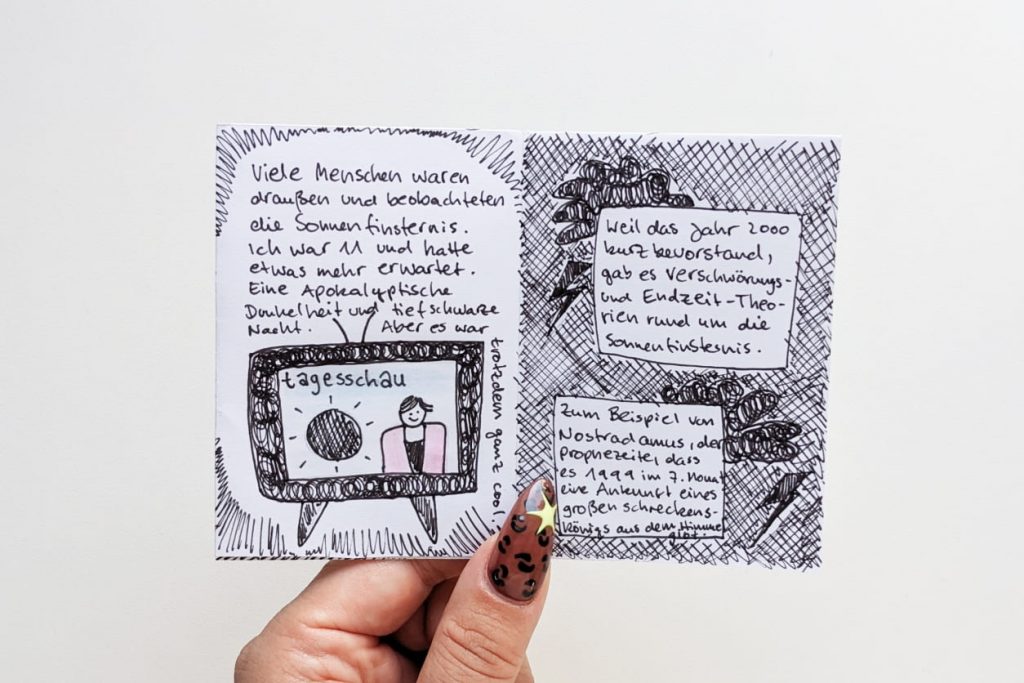 Viele Menschen waren
draußen und beobachteten
die Sonnenfinsternis.
Ich war 11 und hatte
etwas mehr erwartet.
Eine Apokalyptische
Dunkelheit und tiefschwarze
Nacht. Aber es war
trotzdem ganz cool
tagesschau
Weil das Jahr 2000
kurz bevorstand,
gab es Verschwörungs-
und Endzeit-Theo-
rien rund um die
Sonnenfinsternis.
Zum Beispiel von
Nostradamus, der
prophezeite, dass
es 1999 im 7. Monat
eine Ankunft eines
großen schreckens-
königs aus dem Himmel
gibt.